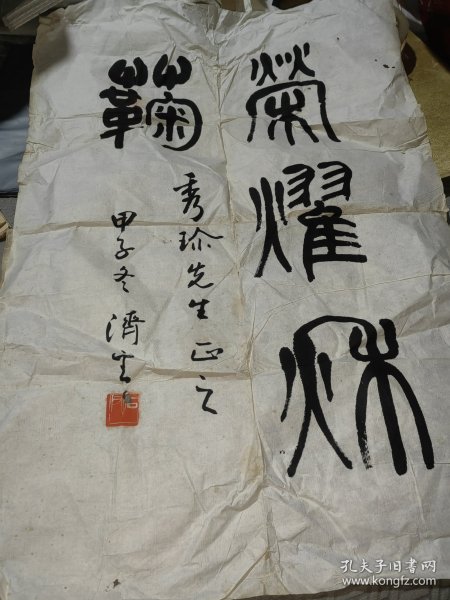 榮燿秌
蘜
秀珍先生正之
甲子冬 濟生
孔夫子旧书网
www.kongfz.com